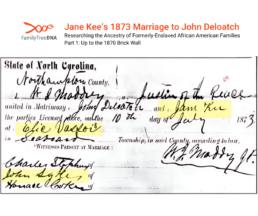 FamilyTreeDNA
Jane Kee's 1873 Marriage to John Deloatch
Researching the Ancestry of Formerly-Enslaved African American Families
Part 1: Up to the 1870 Brick Wall
State of North Carolina,
Northampton County.
I, W. J. Maddrey Justice of the Peace
united in Matrimony, John Deloatch and Jane Kee
the parties Licensed above, on the 10 th day of July 1873
at
in Seaboard Township, in said County, according to law.
WITNESSES PRESENT AT MARRIAGE:
W. J. Maddrey J.P.
Charles Stephenson of
John Sykes of
of